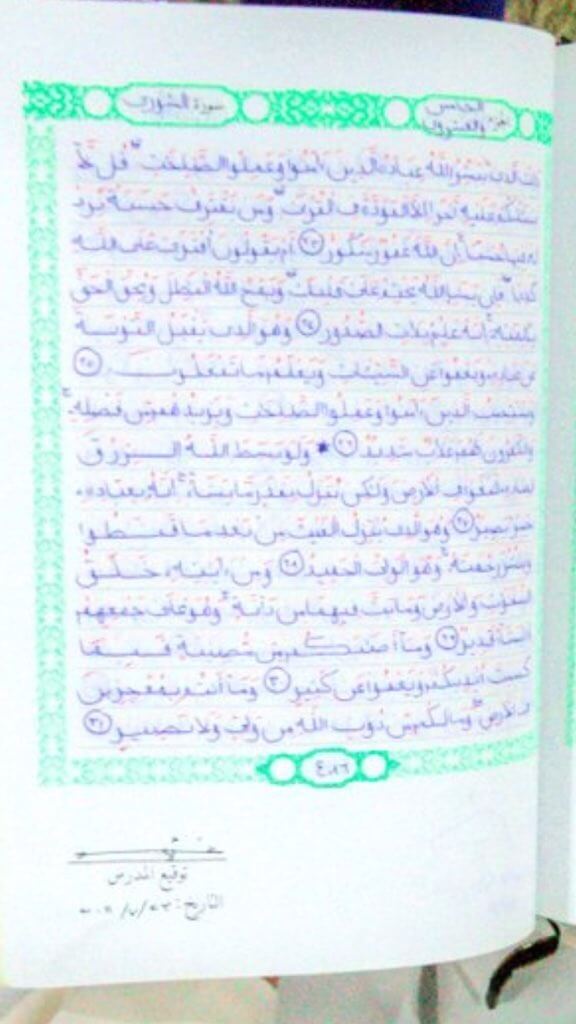 الجزء الخامس والعشرون
سورة الشورى
ذَٰلِكَ الَّذِى يُبَشِّرُ اللَّهُ عِبَادَهُ الَّذِينَ ءَامَنُوا وَعَمِلُوا الصَّٰلِحَٰتِ ۗ قُل لَّا
أَسْـَٔلُكُمْ عَلَيْهِ أَجْرًا إِلَّا الْمَوَدَّةَ فِى الْقُرْبَىٰ ۗ وَمَن يَقْتَرِفْ حَسَنَةً نَّزِدْ
لَهُ فِيهَا حُسْنًا ۚ إِنَّ اللَّهَ غَفُورٌ شَكُورٌ ٢٣ أَمْ يَقُولُونَ افْتَرَىٰ عَلَى اللَّهِ
كَذِبًا ۖ فَإِن يَشَإِ اللَّهُ يَخْتِمْ عَلَىٰ قَلْبِكَ ۗ وَيَمْحُ اللَّهُ الْبَٰطِلَ وَيُحِقُّ الْحَقَّ
بِكَلِمَٰتِهِ ۚ إِنَّهُ عَلِيمٌ بِذَاتِ الصُّدُورِ ٢٤ وَهُوَ الَّذِى يَقْبَلُ التَّوْبَةَ
عَنْ عِبَادِهِ وَيَعْفُوا عَنِ السَّيِّـَٔاتِ وَيَعْلَمُ مَا تَفْعَلُونَ ٢٥
وَيَسْتَجِيبُ الَّذِينَ ءَامَنُوا وَعَمِلُوا الصَّٰلِحَٰتِ وَيَزِيدُهُم مِّن فَضْلِهِ ۚ
وَالْكَٰفِرُونَ لَهُمْ عَذَابٌ شَدِيدٌ ٢٦ * وَلَوْ بَسَطَ اللَّهُ الرِّزْقَ
لِعِبَادِهِ لَبَغَوْا فِى الْأَرْضِ وَلَٰكِن يُنَزِّلُ بِقَدَرٍ مَّا يَشَاءُ ۚ إِنَّهُ بِعِبَادِهِ
خَبِيرٌ بَصِيرٌ ٢٧ وَهُوَ الَّذِى يُنَزِّلُ الْغَيْثَ مِن بَعْدِ مَا قَنَطُوا
وَيَنشُرُ رَحْمَتَهُ ۚ وَهُوَ الْوَلِىُّ الْحَمِيدُ ٢٨ وَمِنْ ءَايَٰتِهِ خَلْقُ
السَّمَٰوَٰتِ وَالْأَرْضِ وَمَا بَثَّ فِيهِمَا مِن دَابَّةٍ ۚ وَهُوَ عَلَىٰ جَمْعِهِمْ
إِذَا يَشَاءُ قَدِيرٌ ٢٩ وَمَا أَصَٰبَكُم مِّن مُّصِيبَةٍ فَبِمَا
كَسَبَتْ أَيْدِيكُمْ وَيَعْفُوا عَن كَثِيرٍ ٣٠ وَمَا أَنتُم بِمُعْجِزِينَ
فِى الْأَرْضِ ۖ وَمَا لَكُم مِّن دُونِ اللَّهِ مِن وَلِىٍّ وَلَا نَصِيرٍ ٣١
٤٨٦
توقيع المدرس
التاريخ: